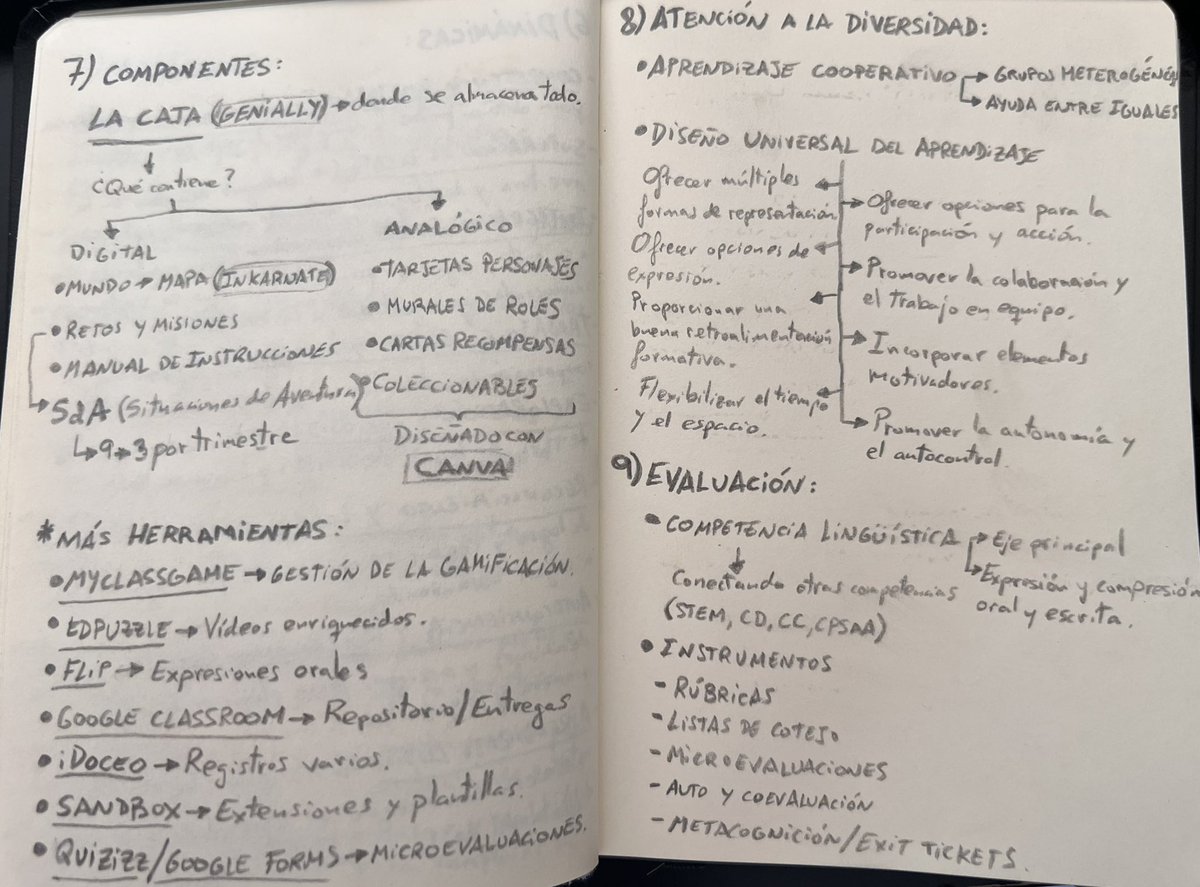 7) COMPONENTES:
LA CAJA (GENIALLY) → donde se almacena todo.
¿Qué contiene?
DIGITAL
• MUNDO → MAPA (INKARNATE)
• RETOS Y MISIONES
• MANUAL DE INSTRUCCIONES
SdA (Situaciones de Aventura)
↳ 9 → 3 por trimestre
ANALÓGICO
• TARJETAS PERSONAJES
• MURALES DE ROLES
• CARTAS RECOMPENSAS
COLECCIONABLES
DISEÑADO CON
CANVA
* MÁS HERRAMIENTAS:
• MYCLASSGAME → GESTIÓN DE LA GAMIFICACIÓN.
• EDPUZZLE → Vídeos enriquecidos.
• FLIP → Expresiones orales
• GOOGLE CLASSROOM → Repositorio/Entregas
• iDOCEO → Registros varios.
• SANDBOX → Extensiones y plantillas.
• QUIZIZZ/GOOGLE FORMS → MICROEVALUACIONES.
8) ATENCIÓN A LA DIVERSIDAD:
• APRENDIZAJE COOPERATIVO → GRUPOS HETEROGÉNEOS
↳ AYUDA ENTRE IGUALES
• DISEÑO UNIVERSAL DEL APRENDIZAJE
Ofrecer múltiples
formas de representación
Ofrecer opciones de
expresión.
Proporcionar una
buena retroalimentación
formativa.
Flexibilizar el tiempo
y el espacio.
Ofrecer opciones para la
participación y acción.
Promover la colaboración y
el trabajo en equipo.
Incorporar elementos
motivadores.
Promover la autonomía y
el autocontrol.
9) EVALUACIÓN:
• COMPETENCIA LINGÜÍSTICA → Eje principal
→ Expresión y compresión
oral y escrita.
Conectando otras competencias
(STEM, CD, CC, CPSAA)
• INSTRUMENTOS
- RÚBRICAS
- LISTAS DE COTEJO
- MICROEVALUACIONES
- AUTO Y COEVALUACIÓN
- METACOGNICIÓN/EXIT TICKETS.